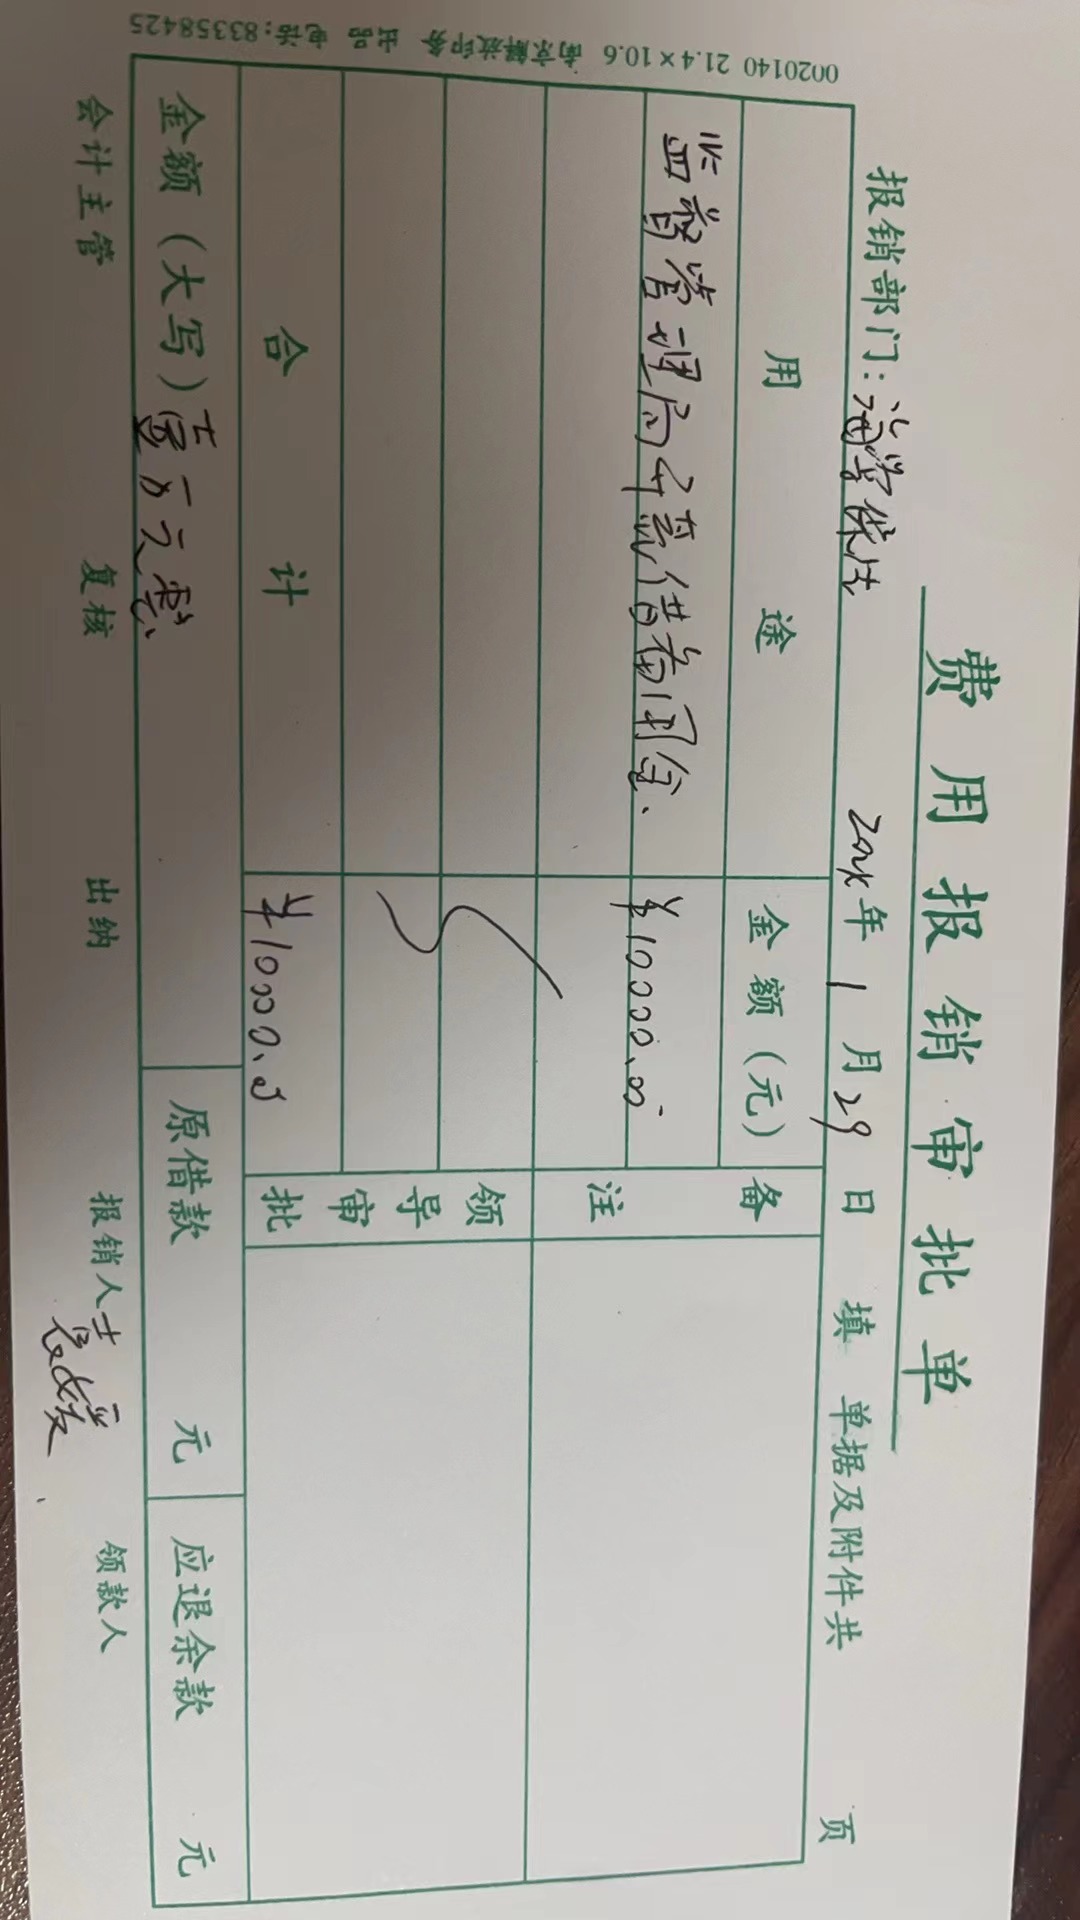 费用报销审批单
报销部门： 年 1 月 29 日 填 单据及附件共 页
用途 金额（元） 备注
监督管理局 借备用金. ¥10000.00
领导审批
合计 ¥10000.00
金额（大写）壹万元零 原借款 元 应退余款 元
会计主管 复核 出纳 报销人 领款人
0020140 21.4×10.6 南京解放印务 出品 电话:83358425